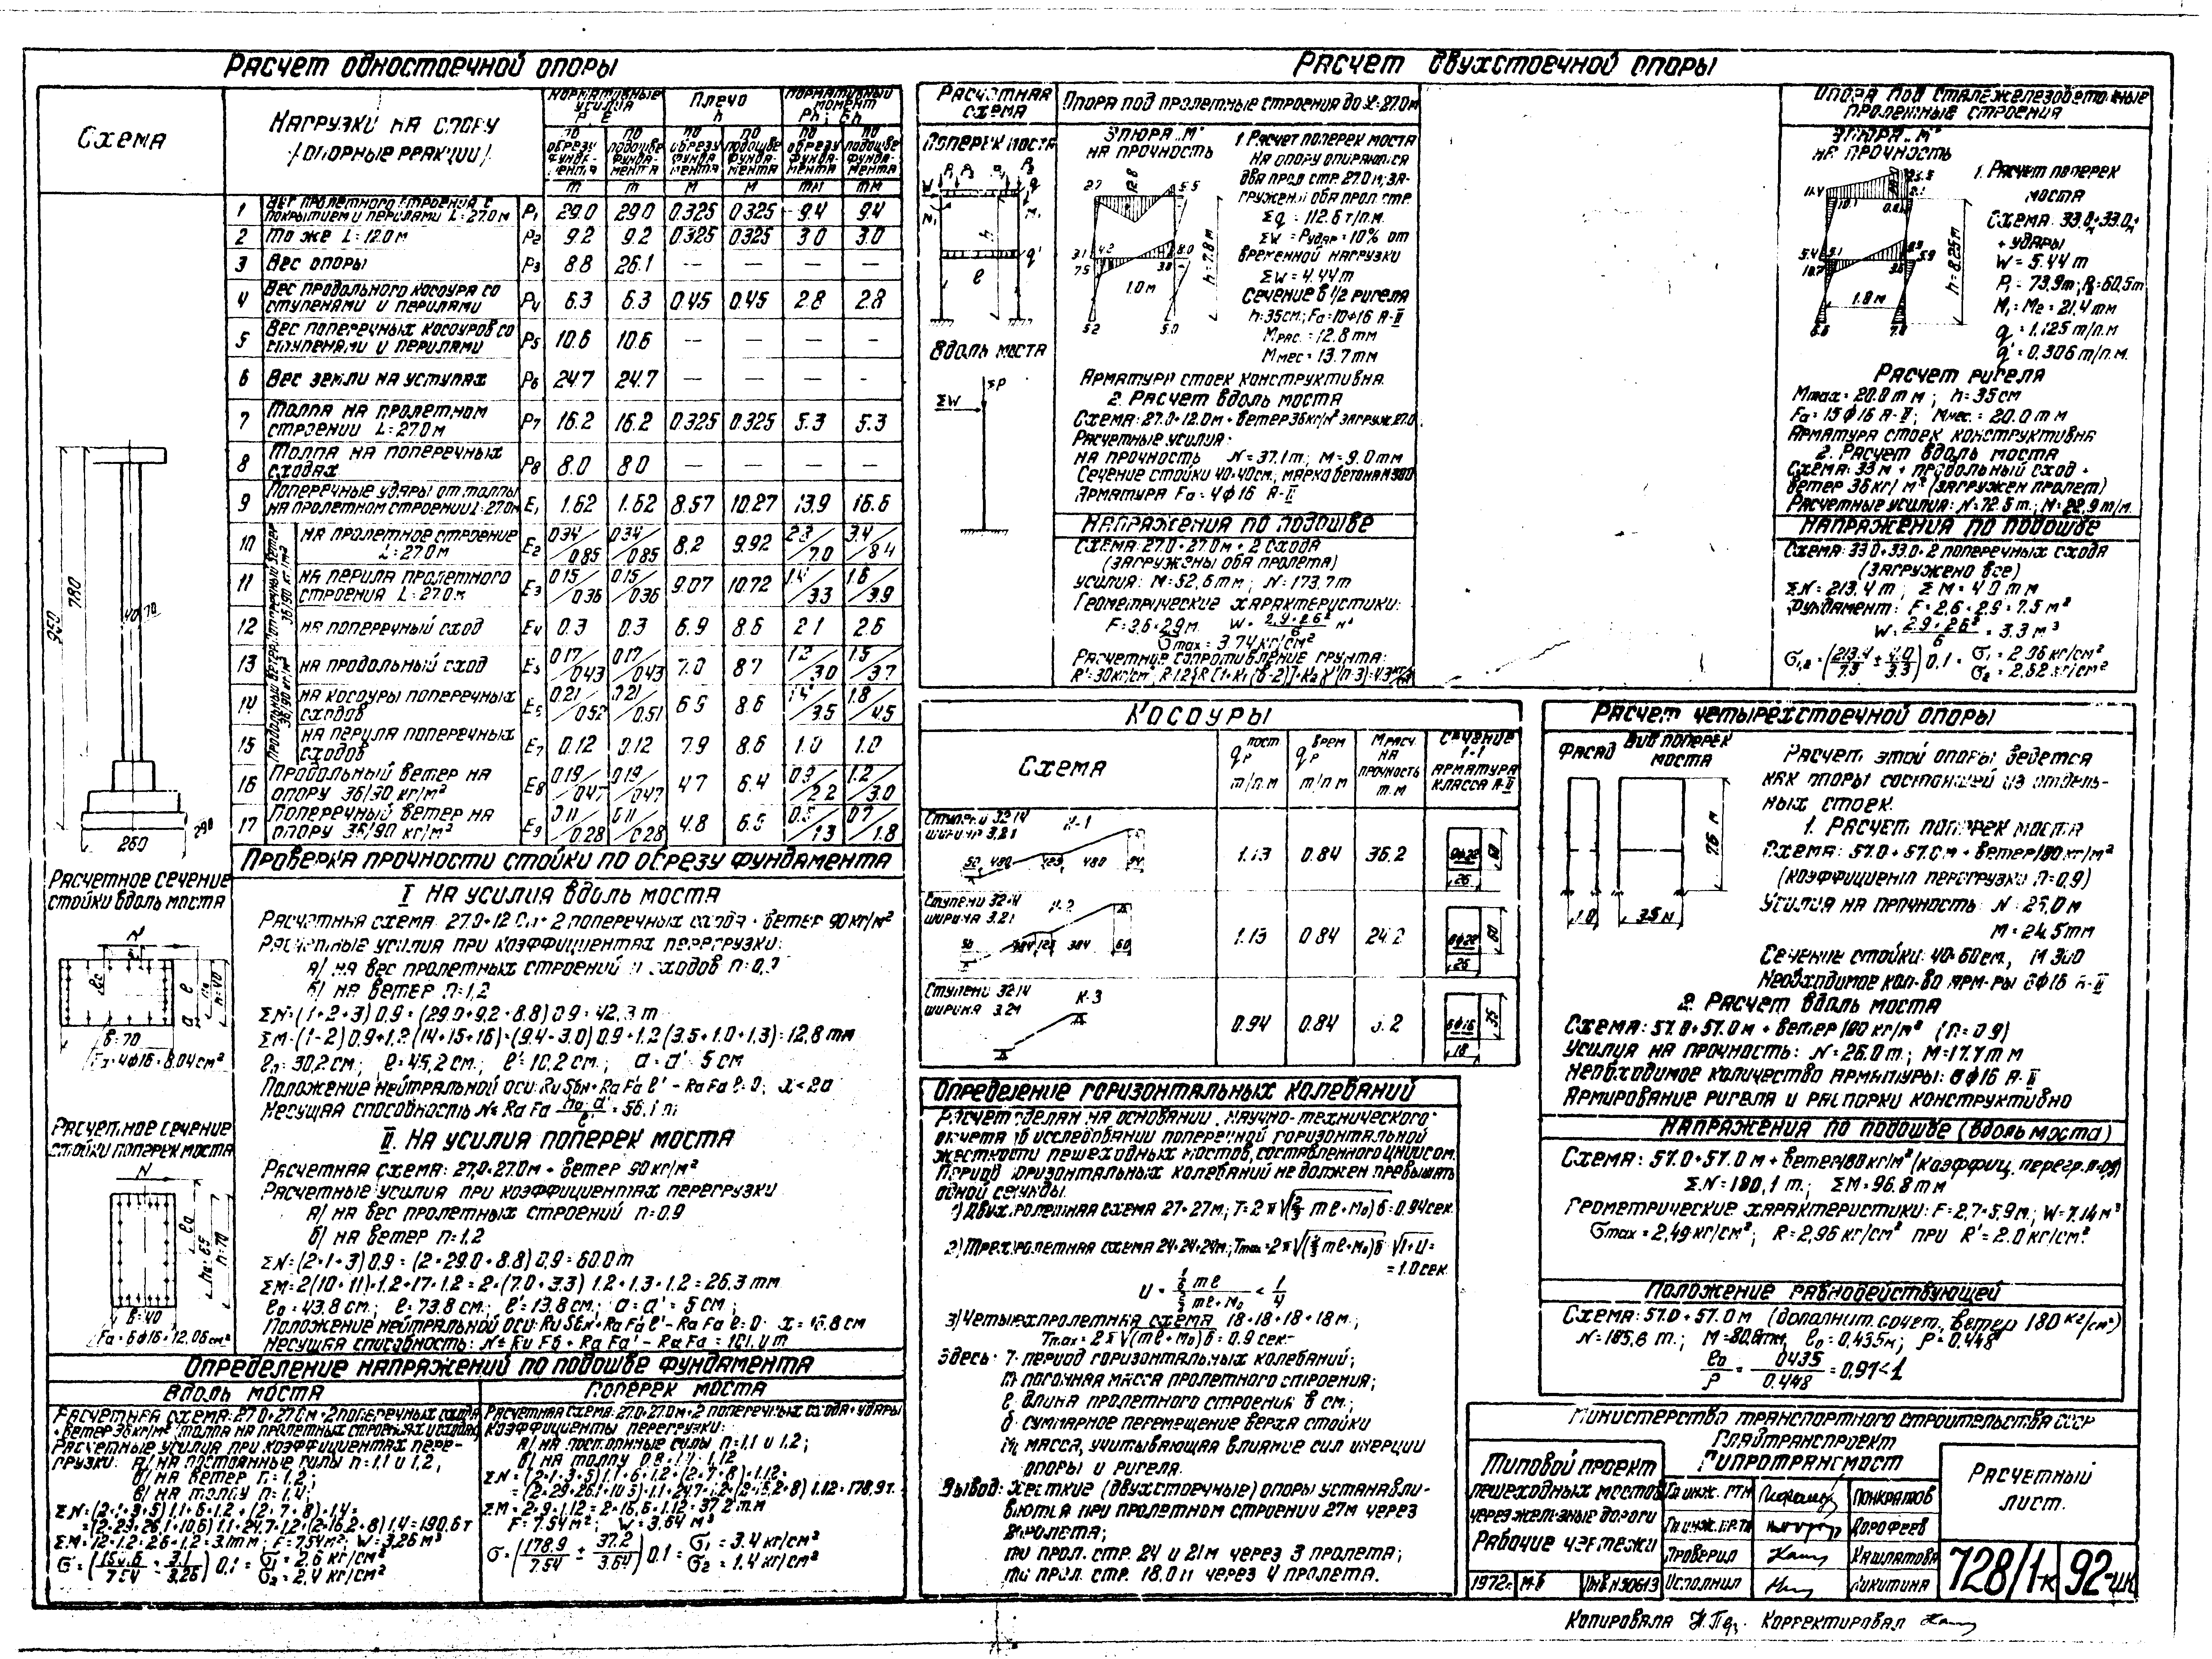 Расчет одностоечной опоры
Схема
Нагрузки на опору
/опорные реакции/
Нормативные усилия P, E
Плечо h
Нормативный момент Ph; Eh
по обрезу фундамента т
по подошве фундамента т
по обрезу фундамента м
по подошве фундамента м
по обрезу фундамента тм
по подошве фундамента тм
1 Вес пролетного строения с покрытием и перилами L=27.0м P₁ 29.0 29.0 0.325 0.325 9.4 9.4
2 То же L=12.0м P₂ 9.2 9.2 0.325 0.325 3.0 3.0
3 Вес опоры P₃ 8.8 26.1 — — — —
4 Вес продольного косоура со ступенями и перилами P₄ 6.3 6.3 0.45 0.45 2.8 2.8
5 Вес поперечных косоуров со ступенями и перилами P₅ 10.6 10.6 — — — —
6 Вес земли на уступах P₆ 24.7 24.7 — — — -
7 Толпа на пролетном строении L=27.0м P₇ 16.2 16.2 0.325 0.325 5.3 5.3
8 Толпа на поперечных сходах P₈ 8.0 8.0 — — — —
9 Поперечные удары от толпы на пролетном строении L=27.0м E₁ 1.62 1.62 8.57 10.27 13.9 16.6
Поперечный ветер 36/90 кг/м²
10 на пролетное строение L=27.0м E₂ 0.34/0.85 0.34/0.85 8.2 9.92 2.3/7.0 3.4/8.4
11 на перила пролетного строения L=27.0м E₃ 0.15/0.36 0.15/0.36 9.07 10.72 1.4/3.3 1.6/3.9
12 на поперечный сход E₄ 0.3 0.3 6.9 8.6 2.1 2.6
Продольный ветер 36/90 кг/м²
13 на продольный сход E₅ 0.17/0.43 0.17/0.43 7.0 8.7 1.2/3.0 1.5/3.7
14 на косоуры поперечных сходов 0.21/0.52 0.21/0.51 6.9 8.6 1.4/3.5 1.8/4.5
15 на перила поперечных сходов E₇ 0.12 0.12 7.9 8.6 1.0 1.0
16 Продольный ветер на опору 36/90 кг/м² E₈ 0.19/0.47 0.19/0.47 4.7 6.4 0.9/2.2 1.2/3.0
17 Поперечный ветер на опору 36/90 кг/м² E₉ 0.11/0.28 0.11/0.28 4.8 6.5 0.5/1.3 0.7/1.8
950
780
40
70
260
290
Расчетное сечение
стойки вдоль моста
N
b=70
Fа=4ф16=8.04см²
Расчетное сечение
стойки поперек моста
N
h₀=65
h=70
b=40
Fа=6ф16=12.06см²
Проверка прочности стойки по обрезу фундамента
I На усилия вдоль моста
Расчетная схема: 27.0+12.0м+2 поперечных схода + ветер 90кг/м²
Расчетные усилия при коэффициентах перегрузки:
а) на вес пролетных строений и сходов n=0,9
б) на ветер n=1,2
ΣN=(1+2+3)0.9=(29.0+9.2+8.8)0.9=42.3 т
ΣM=(1-2)0.9+1.2(14+15+16)=(9.4-3.0)0.9+1.2(3.5+1.0+1.3)=12.8тм
e₀=30,2см; e=45,2см; e'=10.2см; a=a'=5см
Положение нейтральной оси: RuSбн+RaFa'e'-RaFae=0; x<2a'
Несущая способность N=RaFa (h₀-a')/e' = 56.1т
II. На усилия поперек моста
Расчетная схема: 27,0+27.0м+ветер 90кг/м²
Расчетные усилия при коэффициентах перегрузки
а) на вес пролетных строений n=0.9
б) на ветер n=1.2
ΣN=(2·1+3)0.9=(2·29.0+8.8)0.9=60.0т
ΣM=2(10+11)·1.2+17·1.2=2·(7.0+3.3)1.2+1.3·1.2=26.3тм
e₀=43.8см; e=73.8см; e'=13.8см; a=a'=5см;
Положение нейтральной оси: RuSбн+RaFa'e'-RaFae=0; x=16.8см
Несущая способность: N=RuFб+RaFa'-RaFa=101.0т
Определение напряжений по подошве фундамента
Вдоль моста
Расчетная схема: 27.0+27.0м+2 поперечных схода
+ветер 36кг/м² (толпа на пролетных строениях и сходах)
Расчетные усилия при коэффициентах пере-
грузки: а) на постоянные силы n=1.1 и 1,2;
б) на ветер n=1.2;
в) на толпу n=1.4;
ΣN=(2·1+3+5)1.1+6·1.2+(2·7+8)·1.4=
=(2·29+26.1+10.6)1.1+24.7·1.2+(2·16.2+8)1.4=190.6т
ΣM=12·1.2=2.6·1.2=3.1тм; F=7.54м²; W=3.26м³
σ=(190.6/7.54 ± 3.1/3.26)0.1= σ₁=2.6кг/см² σ₂=2.4кг/см²
Поперек моста
Расчетная схема: 27.0+27.0м+2 поперечных схода+удары
Коэффициенты перегрузки:
а) на постоянные силы n=1.1 и 1.2;
б) на толпу 0.8·1.4=1.12
ΣN=(2·1+3+5)1.1+6·1.2+(2·7+8)·1.12=
=(2·29+26.1+10.5)1.1+24.7·1.2+(2·16.2+8)1.12=178.9т.
ΣM=2·9·1.12=2·16.6·1.12=37.2тм
F=7.54м²; W=3.64м³
σ=(178.9/7.54 ± 37.2/3.64)0.1= σ₁=3.4кг/см² σ₂=1.4кг/см²
Расчет двухстоечной опоры
Расчетная схема
Поперек моста
Вдоль моста
ΣW
ΣP
Опора под пролетные строения до L=27.0м
Эпюра „М"
на прочность
2.7
12.8
5.5
3.1
4.2
8.0
7.5
3.8
1.0м
h=7.8м
5.2
5.0
1. Расчет поперек моста
На опору опираются
два прол. стр. 27.0м; за-
гружены оба прол. стр.
Σq=112.6т/п.м.
ΣW=Pудар=10% от
временной нагрузки
ΣW=4.44т
Сечение в 1/2 ригеля
h=35см; Fа=10ф16 А-II
Mрас.=12.8тм
Mнес=13.7тм
Арматура стоек конструктивна.
2. Расчет вдоль моста
Схема: 27.0+12.0м+ветер 36кг/м² загруж. 27.0.
Расчетные усилия:
на прочность N=37.1т; M=9.0тм
Сечение стойки 40×40см; марка бетона М300
Арматура Fа=4ф16 А-II
Напряжения по подошве
Схема: 27.0+27.0м+2 схода
(загружены оба пролета)
Усилия: M=52,6тм; N=173,7т
Геометрические характеристики:
F=2.6×2.9м W=2.9×2.6²/6 м³
σmax=3.74кг/см²
Расчетное сопротивление грунта:
Опора под сталежелезобетонные
пролетные строения
Эпюра „М"
на прочность
11.4
10.1
5.4
5.9
10.7
1.8м
h=8.25м
1. Расчет поперек
моста
Схема: 33.0м+33.0м
+удары
W=5.44т
P₁=73.9т; P₂=60,5т
M₁=M₂=21.4тм
q=1.125т/п.м
q'=0.306т/п.м.
Расчет ригеля
Mmax=20.8тм; h=35см
Fа=15ф16 А-II; Mнес.=20.0тм
Арматура стоек конструктивна
2. Расчет вдоль моста
Схема: 33м+продольный сход+
ветер 36кг/м² (загружен пролет)
Расчетные усилия: N=72.5т.; M=22.9т/м.
Напряжения по подошве
Схема: 33.0+33.0+2 поперечных схода
(загружено все)
ΣN=213.4т; ΣM=4.0тм
Фундамент: F=2.6×2.9=7.5м²
W=2.9×2.6²/6=3.3м³
σ₁,₂=(213.4/7.5 ± 4.0/3.3)0.1= σ₁=2.96кг/см² σ₂=2.62кг/см²
Косоуры
Схема
qр пост т/п.м
qр врем т/п м
Mрасч. на прочность т.м
Сечение 1-1 арматура класса А-II
Ступени 32·14 ширина 3.21 К-1 480 123 480 94 1.13 0.84 36.2 26
Ступени 32·14 ширина 3.21 К-2 123 384 60 1.13 0.84 24.2 8ф20 60 26
Ступени 32·14 ширина 3.21 К-3 0.94 0.84 6ф16 35 18
Определение горизонтальных колебаний
Расчет сделан на основании „Научно-технического
отчета об исследовании поперечной горизонтальной
жесткости пешеходных мостов, составленного ЦНИИСом.
Период горизонтальных колебаний не должен превышать
одной секунды.
1) Двухпролетная схема 27+27м; T=2π√(⅔mℓ+M₀)δ=0.94сек.
2) Трехпролетная схема 24+24+24м; Tmax=2π√(⅚mℓ+M₀)δ·√1+U=
=1.0сек.
3) Четырехпролетная схема 18+18+18+18м;
Tmax=2π√(mℓ+M₀)δ=0.9сек.
Здесь: T- период горизонтальных колебаний;
m погонная масса пролетного строения;
ℓ длина пролетного строения в см;
δ суммарное перемещение верха стойки
M₀ масса, учитывающая влияние сил инерции
опоры и ригеля.
Вывод: жесткие (двухстоечные) опоры устанавли-
ваются при пролетном строении 27м через
2 пролета;
при прол. стр. 24 и 21м через 3 пролета;
при прол. стр. 18.0м через 4 пролета.
Расчет четырехстоечной опоры
Фасад
Вид поперек моста
7.6 м
1.0
3.5 м
Расчет этой опоры ведется
как опоры состоящей из отдель-
ных стоек.
1. Расчет поперек моста
Схема: 57.0+57.0м+ветер 180кг/м²
(коэффициент перегрузки n=0,9)
Усилия на прочность: N=26,0м
M=24,5тм
Сечение стойки: 40×60см, М 300
Необходимое кол-во арм-ры 6ф16 А-II
2. Расчет вдоль моста
Схема: 57.0+57.0м+ветер 180кг/м² (n=0.9)
Усилия на прочность: N=26.0т.; M=17.7тм
Необходимое количество арматуры: 6ф16 А-II
Армирование ригеля и распорки конструктивно
Напряжения по подошве (вдоль моста)
Схема: 57.0+57.0м+ветер 180кг/м² (коэффиц. перегр. n=0,9)
ΣN=180,1т.; ΣM=96.8тм
Геометрические характеристики: F=2,7×5,9м; W=7.14м³
σmax=2,49кг/см²; R=2,96кг/см² при R'=2.0кг/см².
Положение равнодействующей
Схема: 57.0+57.0м (дополнит. сочет., ветер 180 кг/см²)
N=185,6т.; M=80.6тм, e₀=0.435м; ρ=0.448
e₀/ρ=0.435/0.448=0.97<1
Министерство транспортного строительства СССР
Главтранспроект
Гипротрансмост
Типовой проект
пешеходных мостов
через железные дороги
Рабочие чертежи
Гл. инж. ГТМ Панкратов
Гл. инж. пр-та Дорофеев
Проверил Кашлатова
Исполнил Никитина
1972г. М-б Инв N 50613
Расчетный
лист.
728/1-к 92-цк
Копировала Корректировал